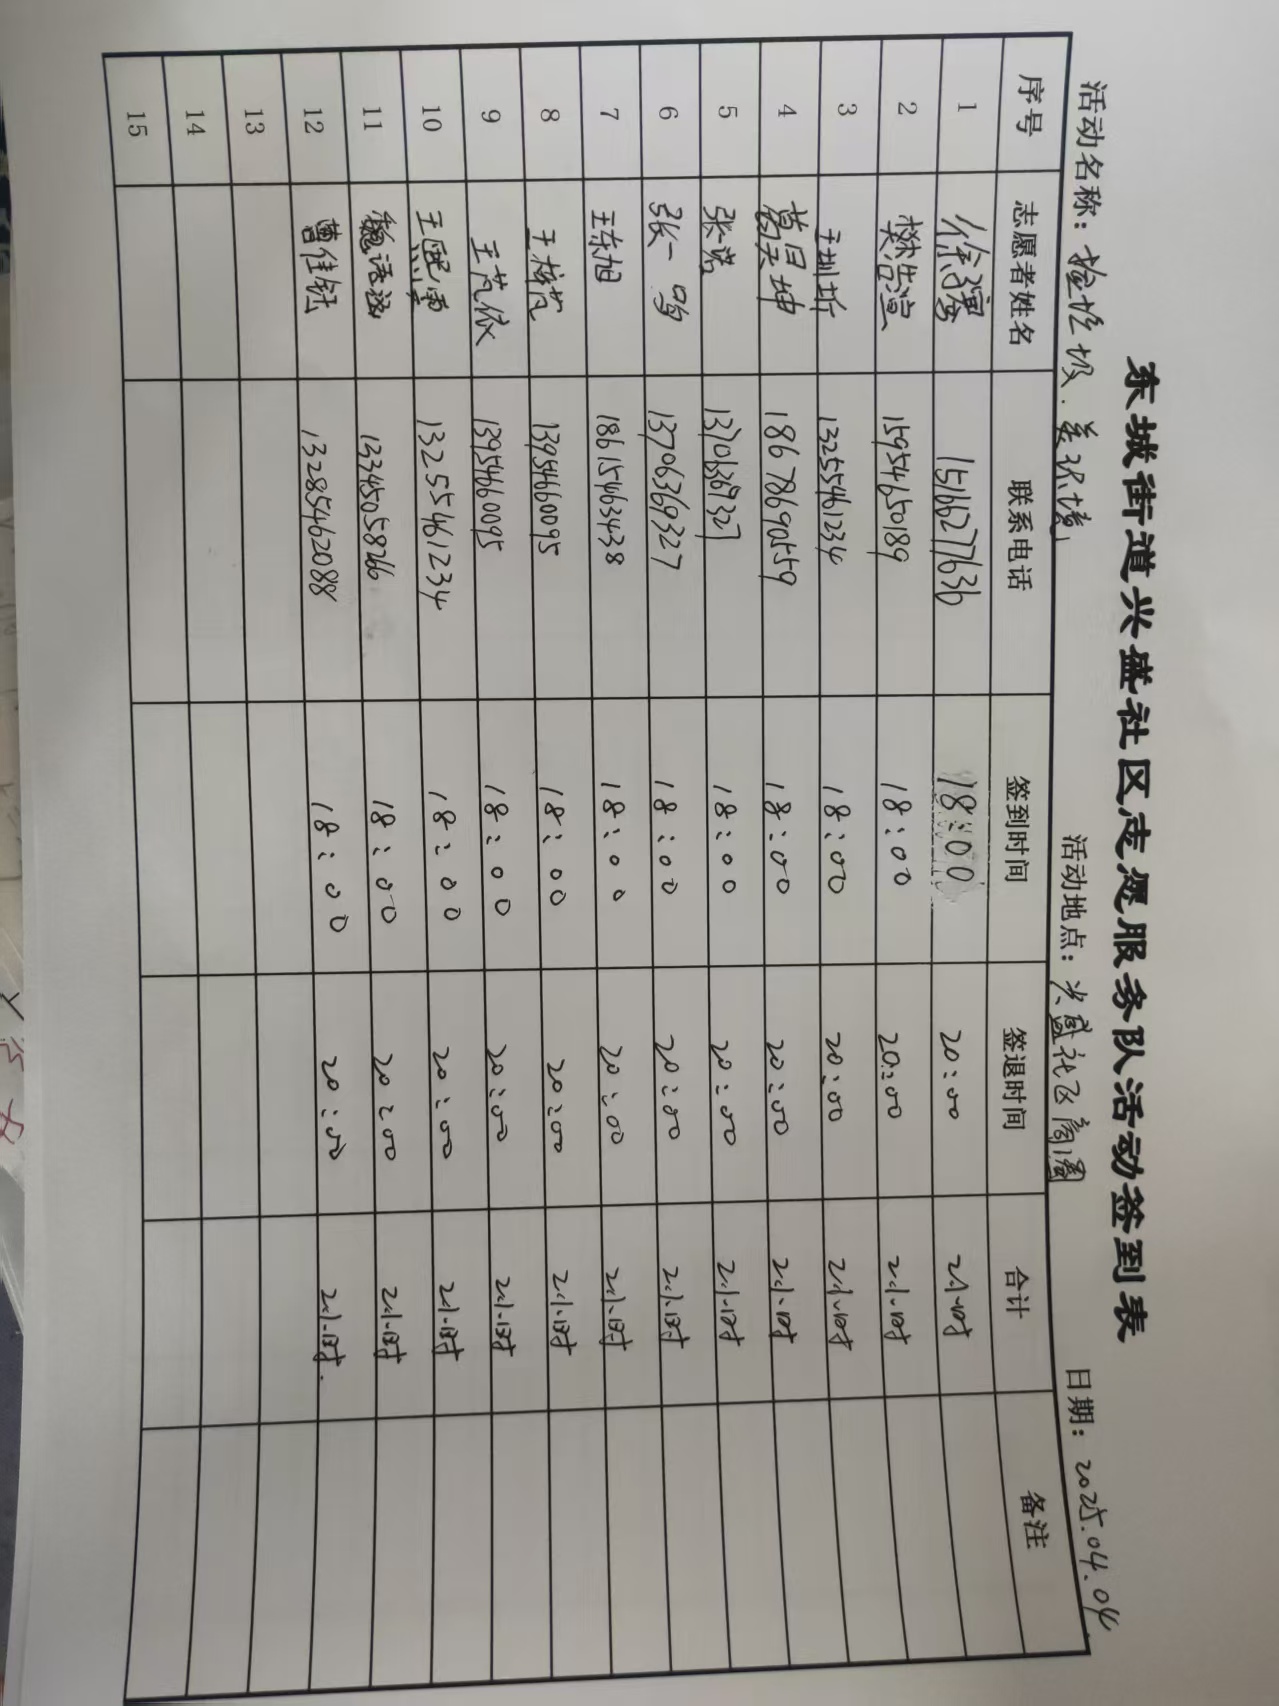 东城街道兴盛社区志愿服务队活动签到表
活动名称：捡垃圾.美环境 活动地点：兴盛社区商圈 日期：2025.04.04
序号 志愿者姓名 联系电话 签到时间 签退时间 合计 备注
1 徐骞 15166277636 18:00 20:00 2小时
2 樊浩渲 15954650189 18:00 20:00 2小时
3 王圳圻 13255461234 18:00 20:00 2小时
4 葛昊坤 18678690559 18:00 20:00 2小时
5 张一诺 13706369327 18:00 20:00 2小时
6 张一鸣 13706369327 18:00 20:00 2小时
7 王东旭 18615463438 18:00 20:00 2小时
8 王梓芃 13954660095 18:00 20:00 2小时
9 王芃依 13954660095 18:00 20:00 2小时
10 王熙雯 13255461234 18:00 20:00 2小时
11 魏语涵 13345058266 18:00 20:00 2小时
12 曹佳钰 13285462088 18:00 20:00 2小时.
13
14
15